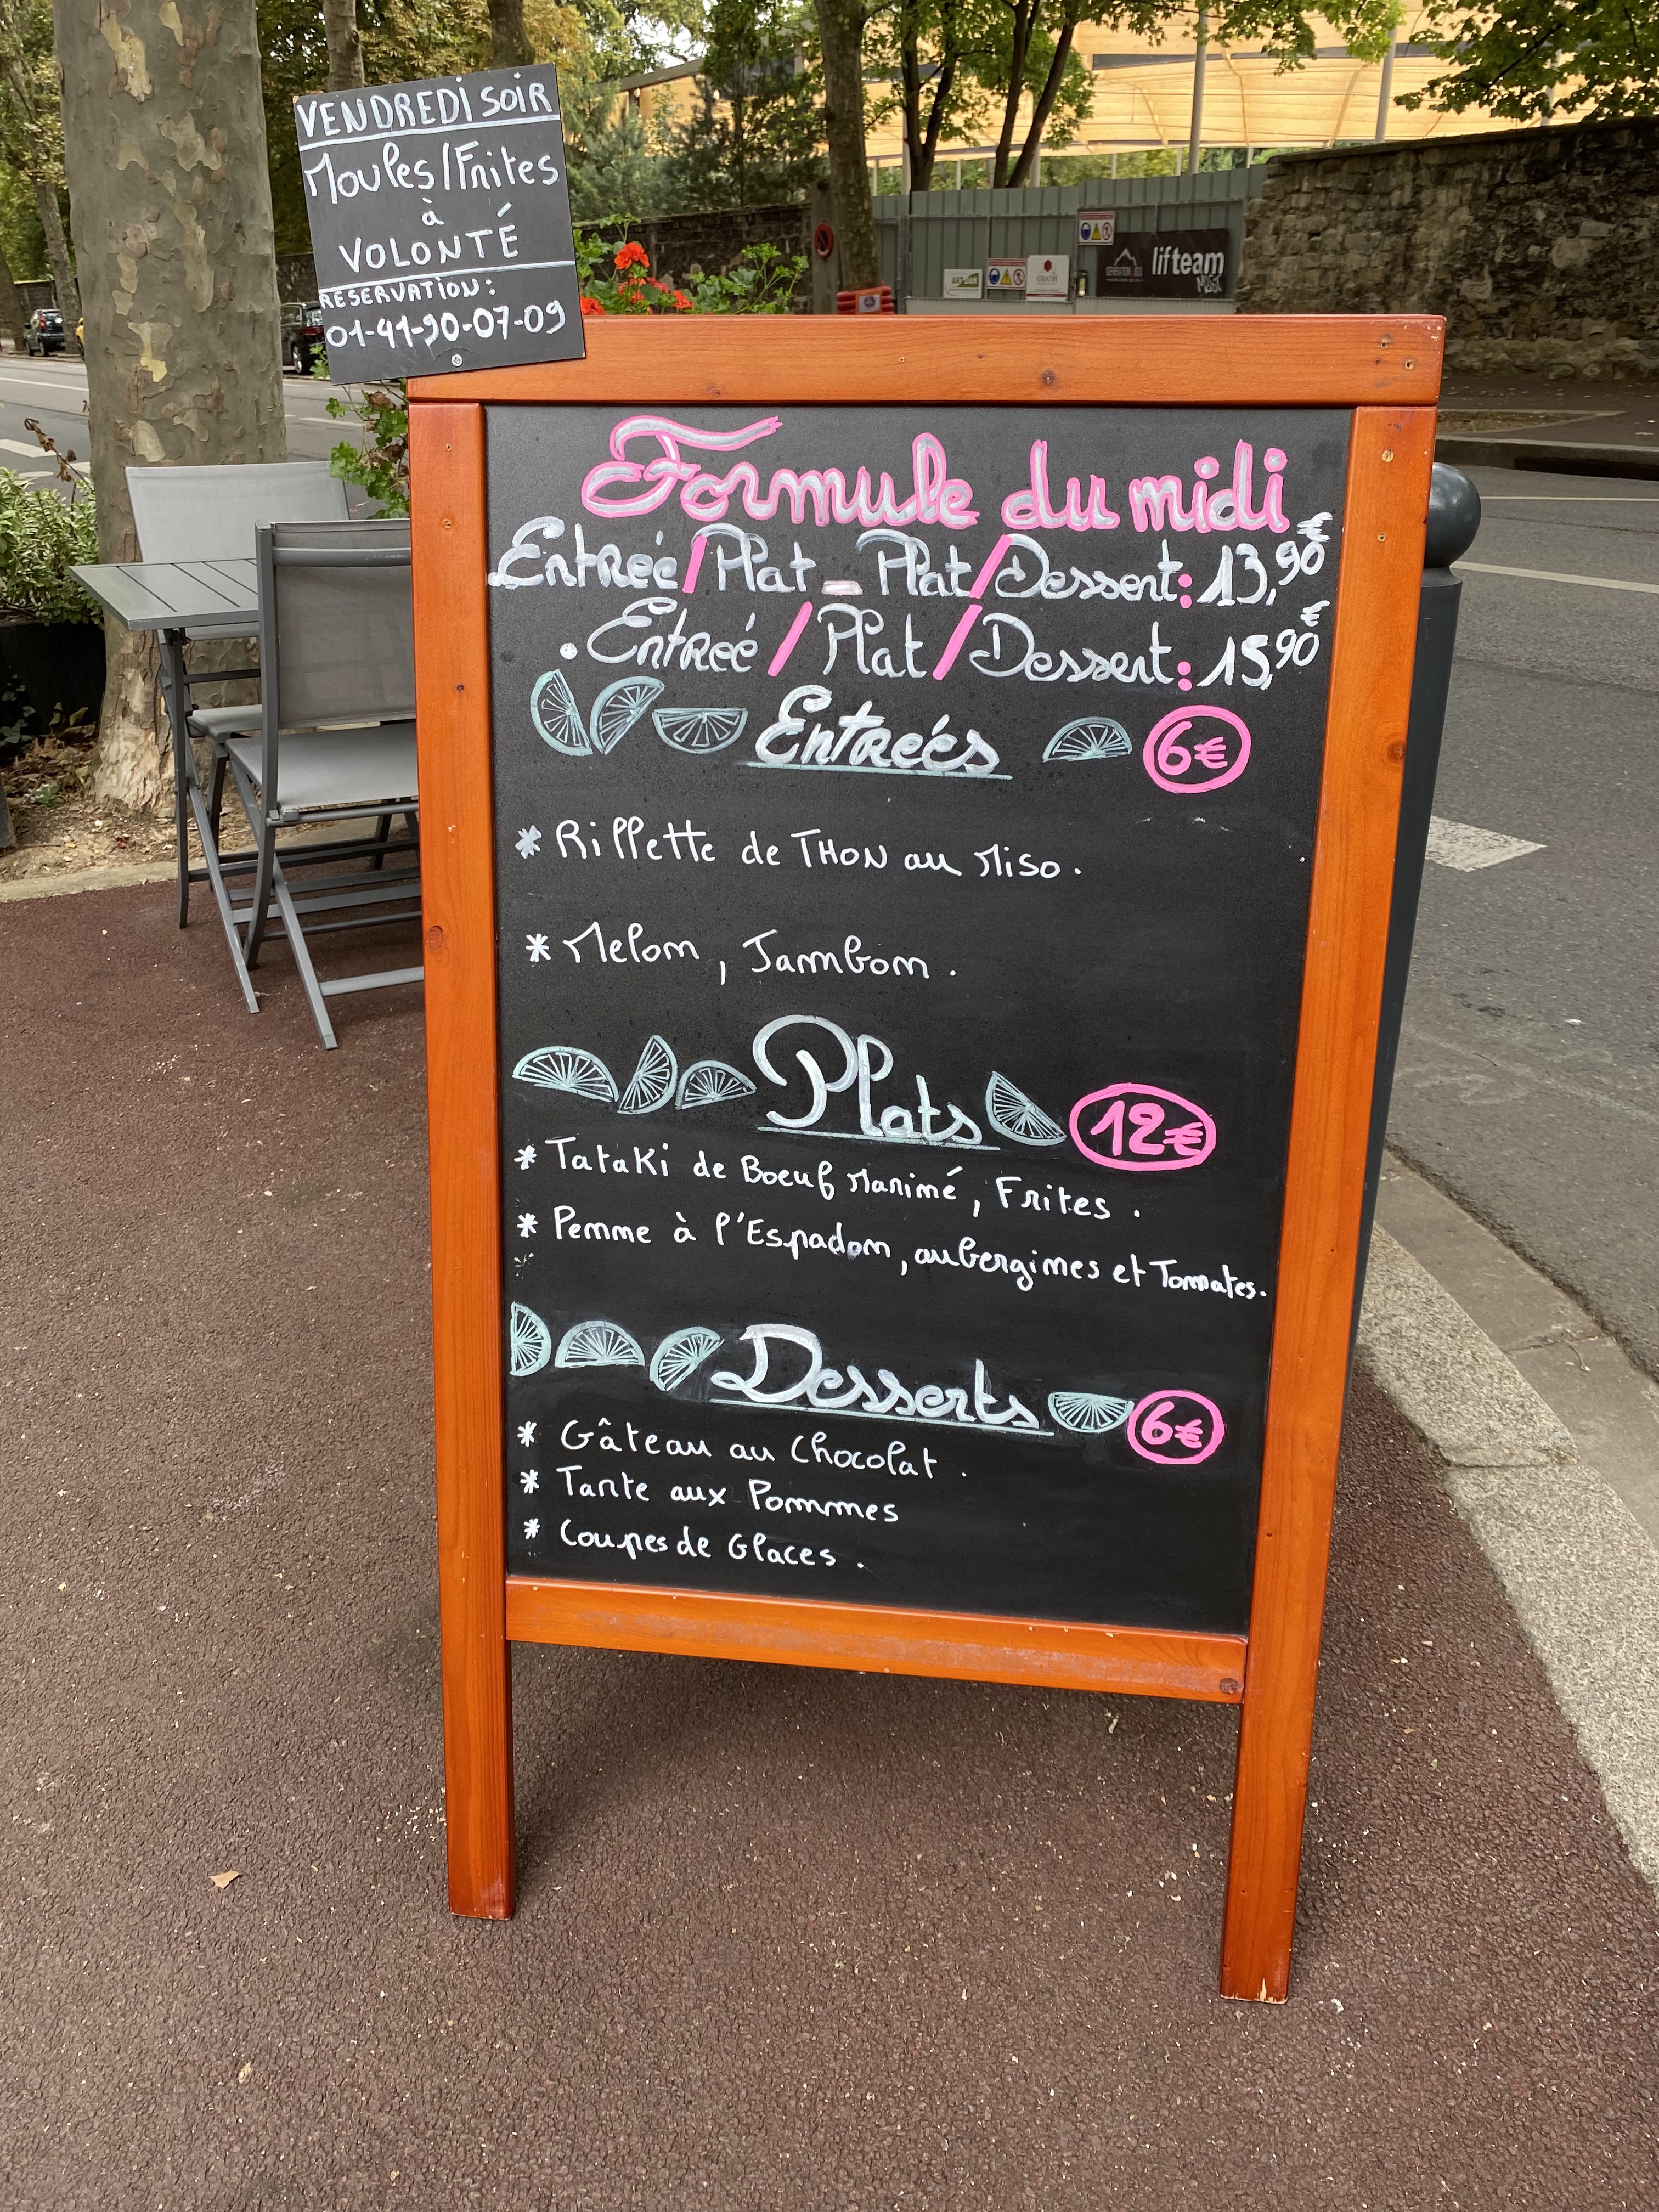 VENDREDI SOIR
Moules/Frites
à
VOLONTÉ
RESERVATION:
01-41-90-07-09
lifteam
Formule du midi
Entreé/Plat - Plat/Dessert: 13,90€
. Entreé/Plat/Dessert: 15,90€
Entreés 6€
* Rillette de THON au Miso.
* Melon, Jambon.
Plats 12€
* Tataki de Boeuf Mariné, Frites.
* Penne à l'Espadon, aubergines et Tomates.
Desserts 6€
* Gâteau au Chocolat.
* Tarte aux Pommes
* Coupes de Glaces.